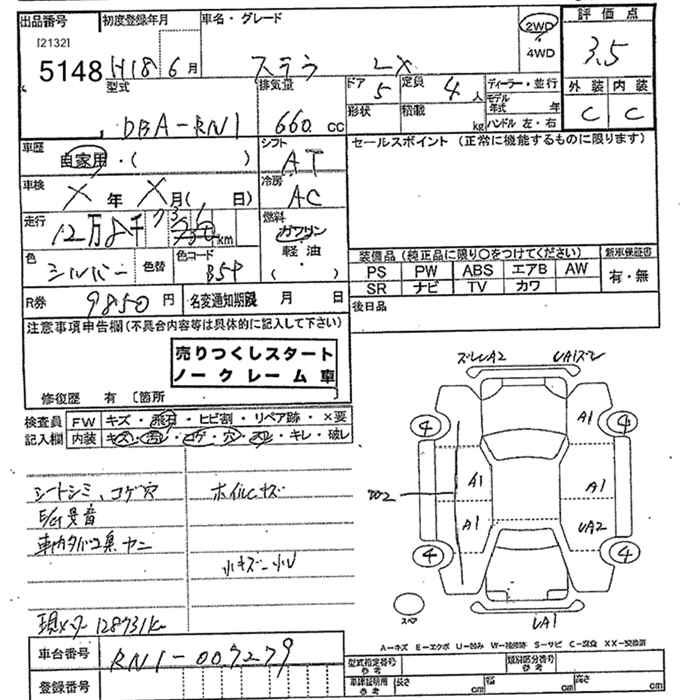 出品番号 初度登録年月 車名・グレード 2WD 評価点
[2132] 4WD
5148 H18 6月 ステラ LX 3.5
型式 排気量 ドア 5 定員 4人 ディーラー・並行 外装 内装
DBA-RN1 660 CC 形状 積載 kg モデル年式 年 C C
ハンドル 左・右
車歴 自家用・( ) シフト AT セールスポイント (正常に機能するものに限ります)
車検 X年 X月( 日) 冷房 AC
走行 12万8千731km 燃料 ガソリン
軽油
( )
色 シルバー 色替 色コード B5P
装備品 (純正品に限り○をつけてください) 新車保証書
PS PW ABS エアB AW 有・無
SR ナビ TV カワ
R券 9850円 名変通知期限 月 日 後日品
注意事項申告欄 (不具合内容等は具体的に記入して下さい)
売りつくしスタート
ノークレーム車
修復歴 有 〔箇所
検査員 FW キズ・飛石・ヒビ割・リペア跡・×要
記入欄 内装 キズ・汚レ・コゲ・穴・スレ・キレ・破レ
シートシミ、コゲ穴 ホイルキズ
E/G異音
車内タバコ臭 ヤニ
小キズ 小U
現メーター 128731km
ズレUA2 UA1ズレ
4 A1 4
A1 A1
A1 UA2
4 4
スペア UA1
A-キズ E-エクボ U-凹み W-補修跡 S-サビ C-腐食 XX-交換済
車台番号 RN1-007279
登録番号
型式指定番号 参考 類別区分番号 参考
車庫証明用 参考 長さ cm 幅 cm 高さ cm